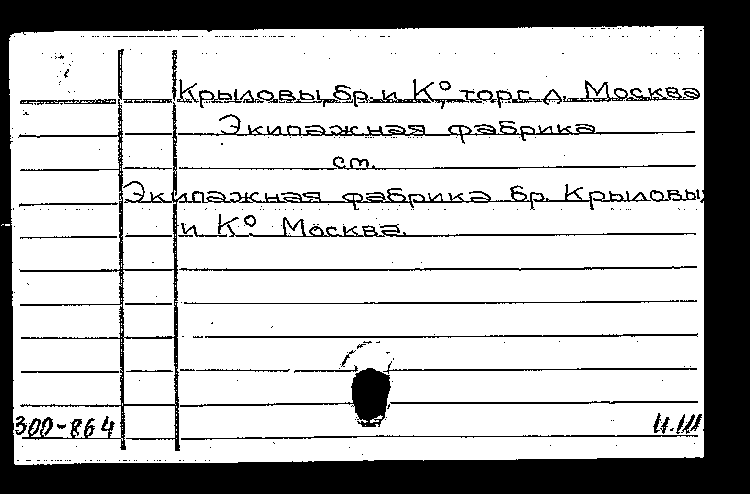 Крыловы, бр. и К°, торг. д. Москва
Экипажная фабрика
см.
Экипажная фабрика бр. Крыловых
и К° Москва.
300-864
И.Ш.